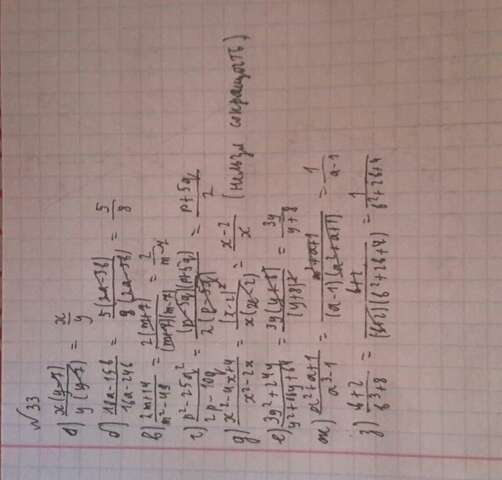 №33
а) x(y-7)/y(y-7) = x/y
б) 10a-15b/16a-24b = 5(2a-3b)/8(2a-3b) = 5/8
в) 2m+14/m²-49 = 2(m+7)/(m+7)(m-7) = 2/m-7
г) p²-25q²/2p-10q = (p-5q)(p+5q)/2(p-5q) = p+5q/2
д) x²-4x+4/x²-2x = (x-2)²/x(x-2) = x-2/x (нельзя сокращать)
е) 3y²+24y/y²+16y+64 = 3y(y+8)/(y+8)² = 3y/y+8
ж) a²+a+1/a³-1 = a²+a+1/(a-1)(a²+a+1) = 1/a-1
з) b+2/b³+8 = b+2/(b+2)(b²+2b+4) = 1/b²+2b+4